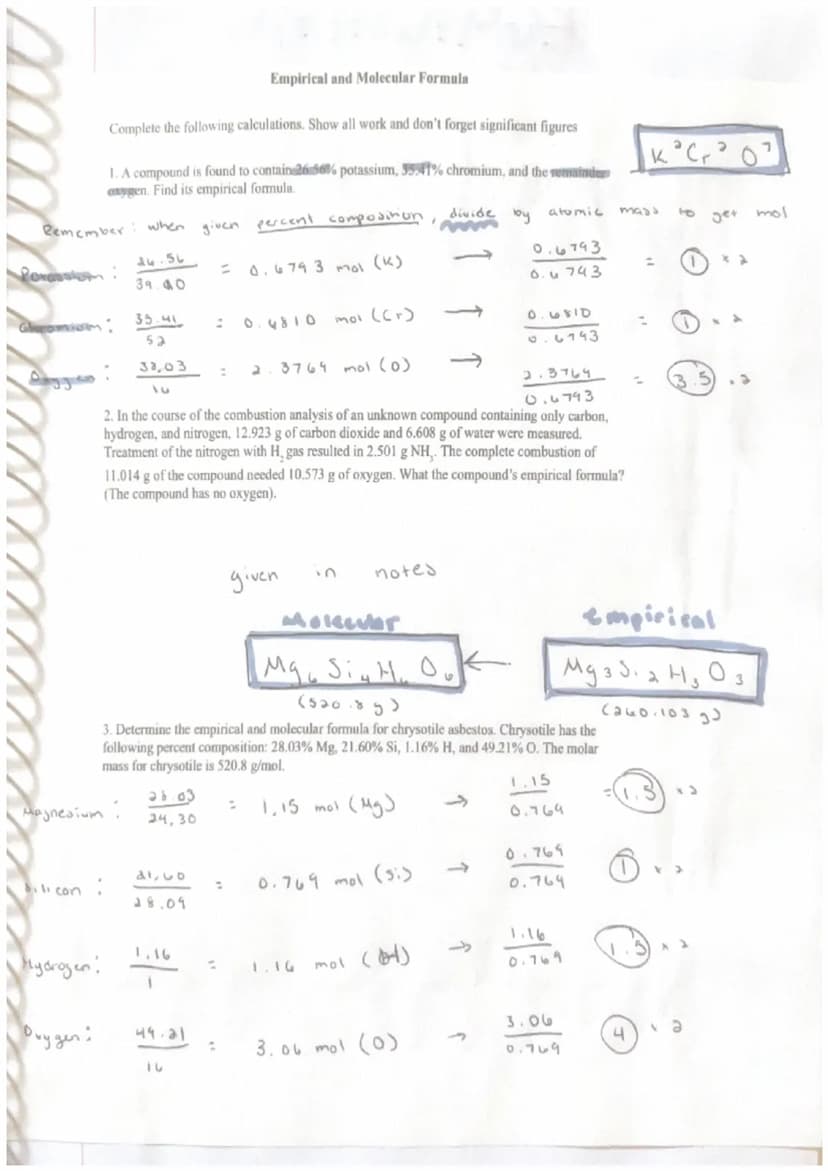 Empirical and Molecular Formula
Complete the following calculations. Show all work and don't forget significant figures
K²Cr²O⁷
1. A compound is found to contain 26.56% potassium, 35.41% chromium, and the remainder
oxygen. Find its empirical formula.
Remember: when given percent composition, divide by atomic mass to get mol
Potassium: 26.56/39.10 = 0.6793 mol (K) → 0.6793/0.6793 = 1 x 2
Chromium: 35.41/52 = 0.6810 mol (Cr) → 0.6810/0.6793 = 1 x 2
Oxygen: 38.03/16 = 2.3769 mol (O) → 2.3769/0.6793 = 3.5 x 2
2. In the course of the combustion analysis of an unknown compound containing only carbon,
hydrogen, and nitrogen, 12.923 g of carbon dioxide and 6.608 g of water were measured.
Treatment of the nitrogen with H₂ gas resulted in 2.501 g NH₃. The complete combustion of
11.014 g of the compound needed 10.573 g of oxygen. What the compound's empirical formula?
(The compound has no oxygen).
given in notes
Molecular Empirical
Mg₆Si₄H₆O₆ ← Mg₃Si₂H₃O₃
(520.8 g) (260.103 g)
3. Determine the empirical and molecular formula for chrysotile asbestos. Chrysotile has the
following percent composition: 28.03% Mg, 21.60% Si, 1.16% H, and 49.21% O. The molar
mass for chrysotile is 520.8 g/mol.
Magnesium: 28.03/24.30 = 1.15 mol (Mg) → 1.15/0.769 = 1.5 x 2
Silicon: 21.60/28.09 = 0.769 mol (Si) → 0.769/0.769 1 x 2
Hydrogen: 1.16/1 = 1.16 mol (H) → 1.16/0.769 1.5 x 2
Oxygen: 49.21/16 = 3.06 mol (O) → 3.06/0.769 4 x 2